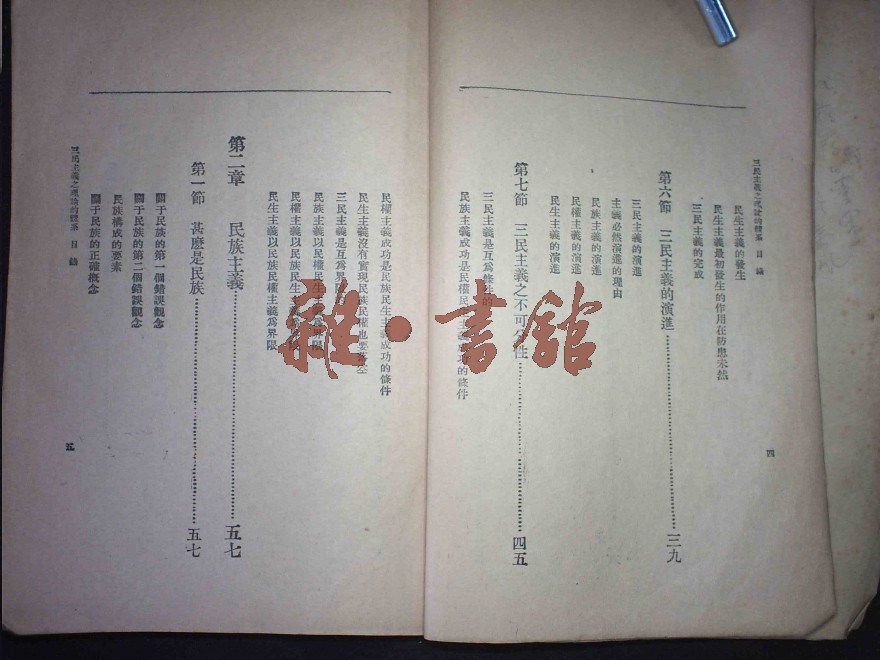 三民主義之理論的體系 目錄
民生主義的發生
民生主義最初發生的作用在防患未然
三民主義的完成
第六節 三民主義的演進 三九
三民主義的演進
主義必然演進的理由
民族主義的演進
民權主義的演進
民生主義的演進
第七節 三民主義之不可分性 四五
三民主義是互爲條件的
民族主義成功是民權民生主義成功的條件
四
民權主義成功是民族民生主義成功的條件
民生主義沒有實現民族民權也要落空
三民主義是互爲界限的
民族主義以民權民生主義爲界限
民權主義以民族民生主義爲界限
民生主義以民族民權主義爲界限
第二章 民族主義 五七
第一節 甚麼是民族 五七
關于民族的第一個錯誤觀念
關于民族的第二個錯誤觀念
民族構成的要素
關于民族的正確概念
三民主義之理論的體系 目錄
五
雜·書館